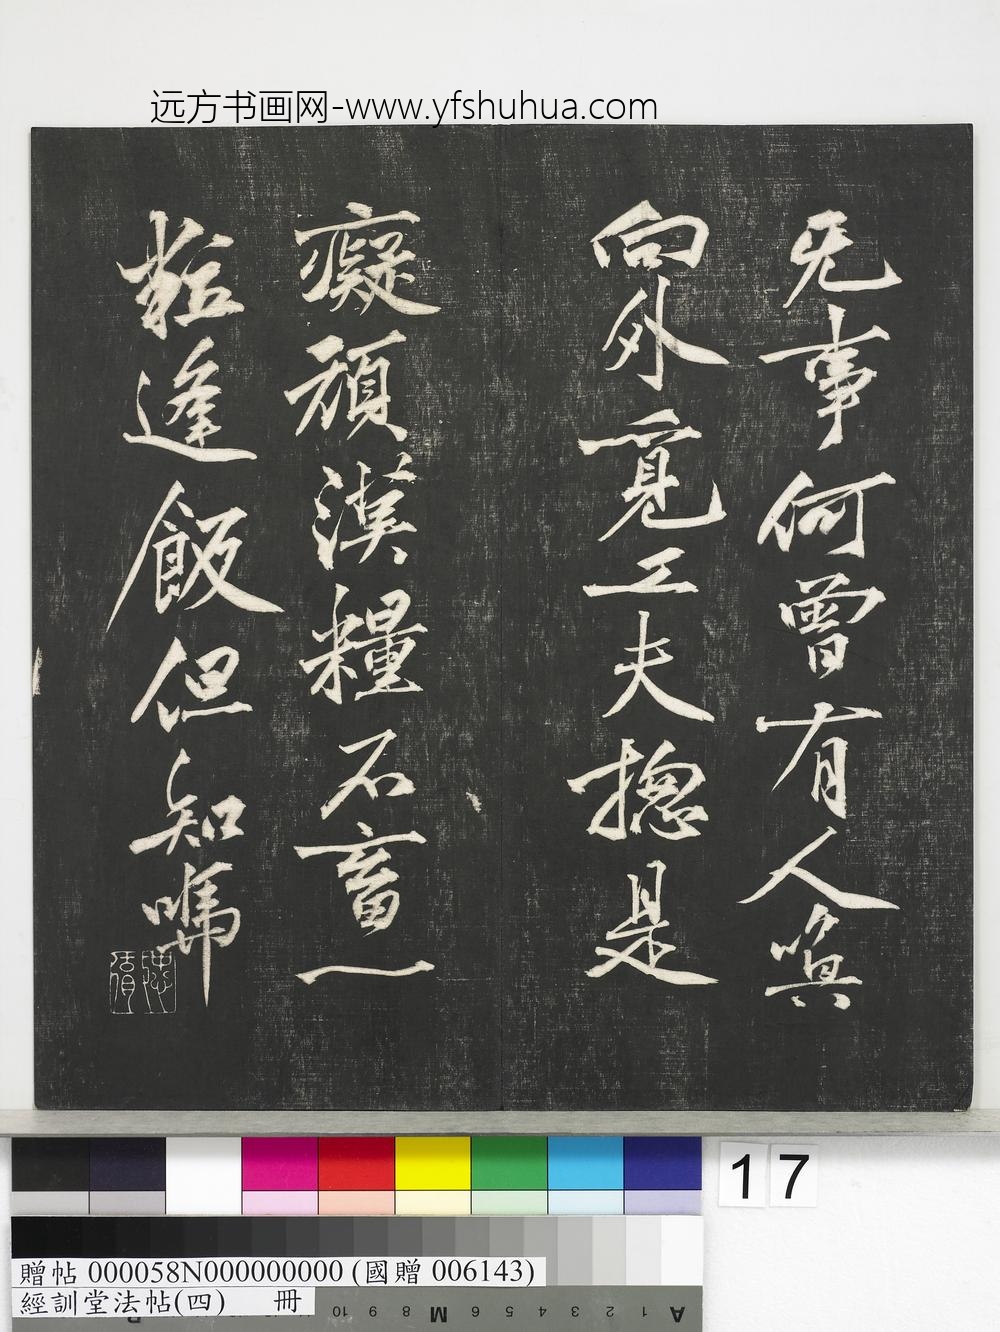 远方书画网-www.yfshuhua.com
无事何曾有人唤
向外覔工夫揔是
癡頑漢糧不畜一
粒逢飯但知嗎
17
贈帖 000058N000000000 (國贈 006143)
經訓堂法帖(四) 冊
10 9 8 M 6 5 4 3 2 1 A